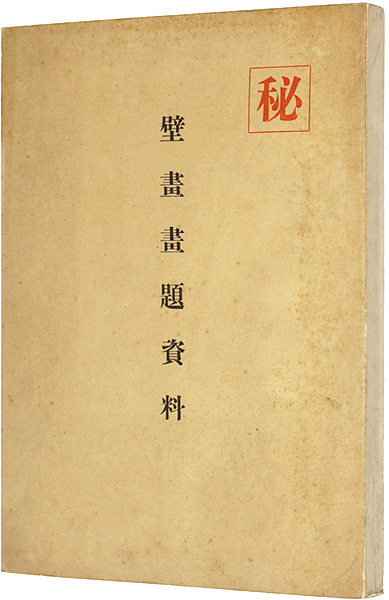 秘
壁畫畫題資料